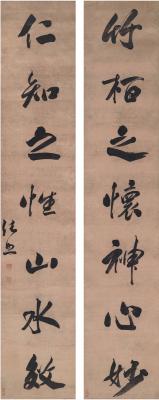 竹栢之懷神心妙
仁知之性山水效
張照